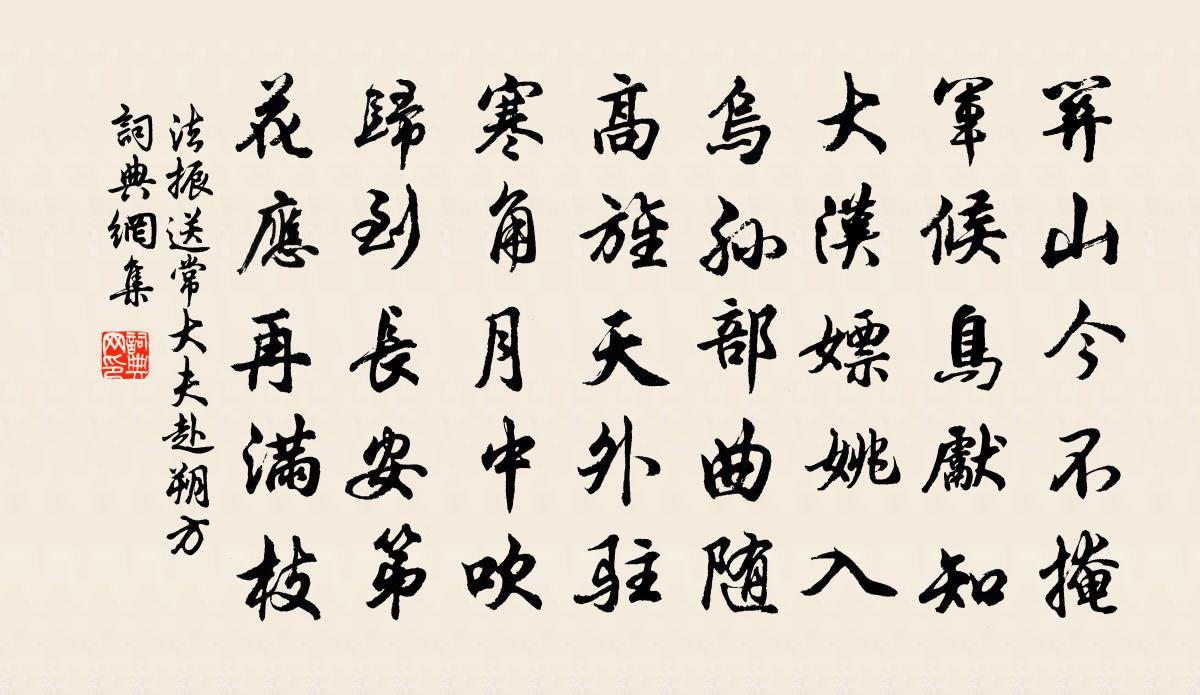 關山今不掩
軍候鳥獻知
大漢嫖姚入
烏孫部曲随
髙旌天外駐
寒角月中吹
歸到長安第
花應再滿枝
法振送常大夫赴朔方
詞典網集
詞典网印